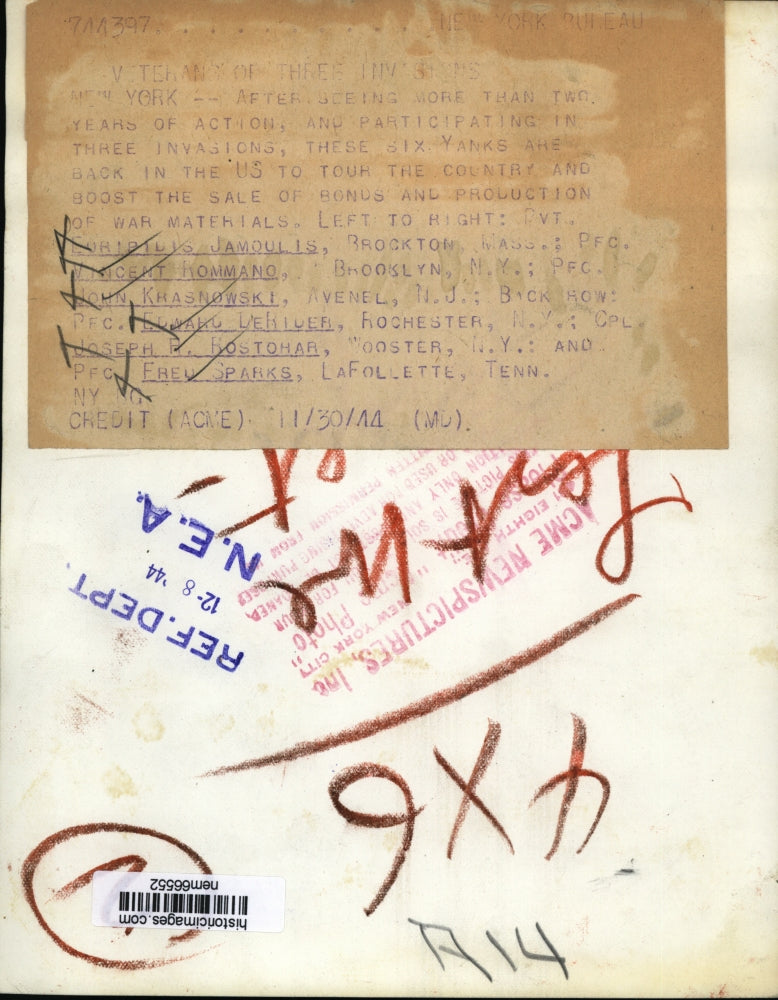 744397. . . . . . . . . . . . NEW YORK BUREAU
VETERANS OF THREE INVASIONS
NEW YORK -- AFTER SEEING MORE THAN TWO
YEARS OF ACTION, AND PARTICIPATING IN
THREE INVASIONS, THESE SIX YANKS ARE
BACK IN THE US TO TOUR THE COUNTRY AND
BOOST THE SALE OF BONDS AND PRODUCTION
OF WAR MATERIALS. LEFT TO RIGHT: PVT.
EURIPIDIS JAMOULIS, BROCKTON, MASS.; PFC.
VINCENT ROMMANO, BROOKLYN, N.Y.; PFC.
JOHN KRASNOWSKI, AVENEL, N.J.; BACK ROW:
PFC. EDWARD DERIDER, ROCHESTER, N.Y.; CPL.
JOSEPH P. ROSTOHAR, WOOSTER, N.Y.: AND
PFC. FRED SPARKS, LAFOLLETTE, TENN.
NY NG
CREDIT (ACME) 11/30/44 (MD).
REF. DEPT.
12-8 '44
N.E.A.
ACME NEWSPICTURES, Inc
NEW YORK CITY
Photo
4X6
historicimages.com
nem66552
A14